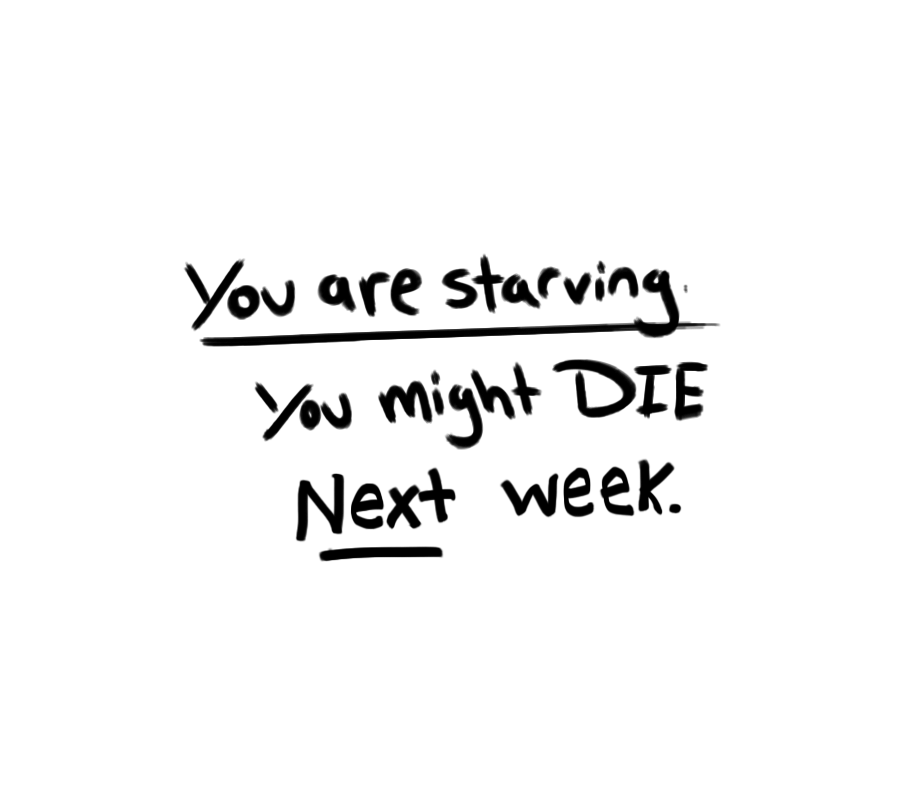 You are starving.
You might DIE
Next week.